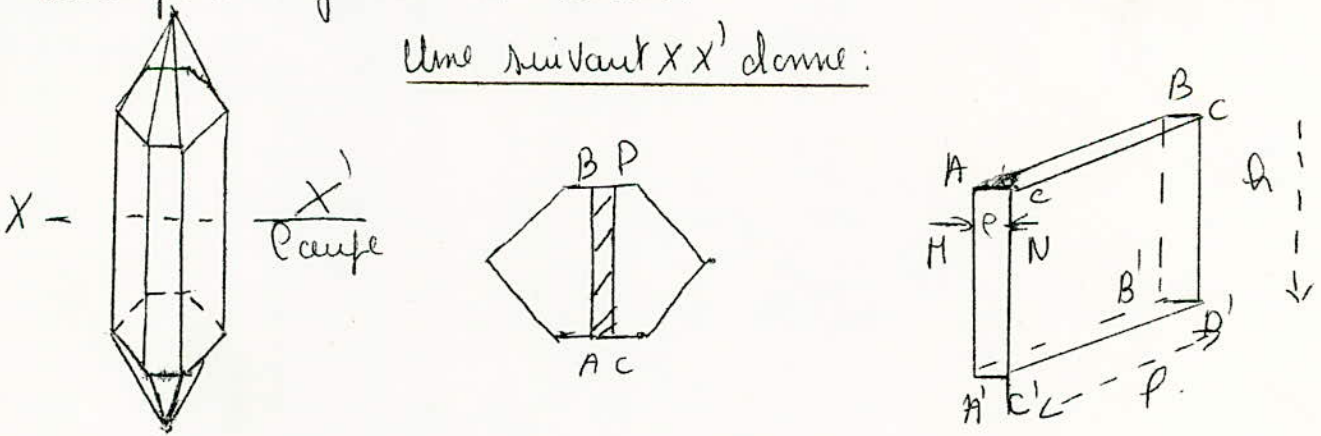 Une suivant XX' donne :
X - X'
Coupe
B P
A C
A
B
C
c
h
M e N
B'
D'
A' C'
l.